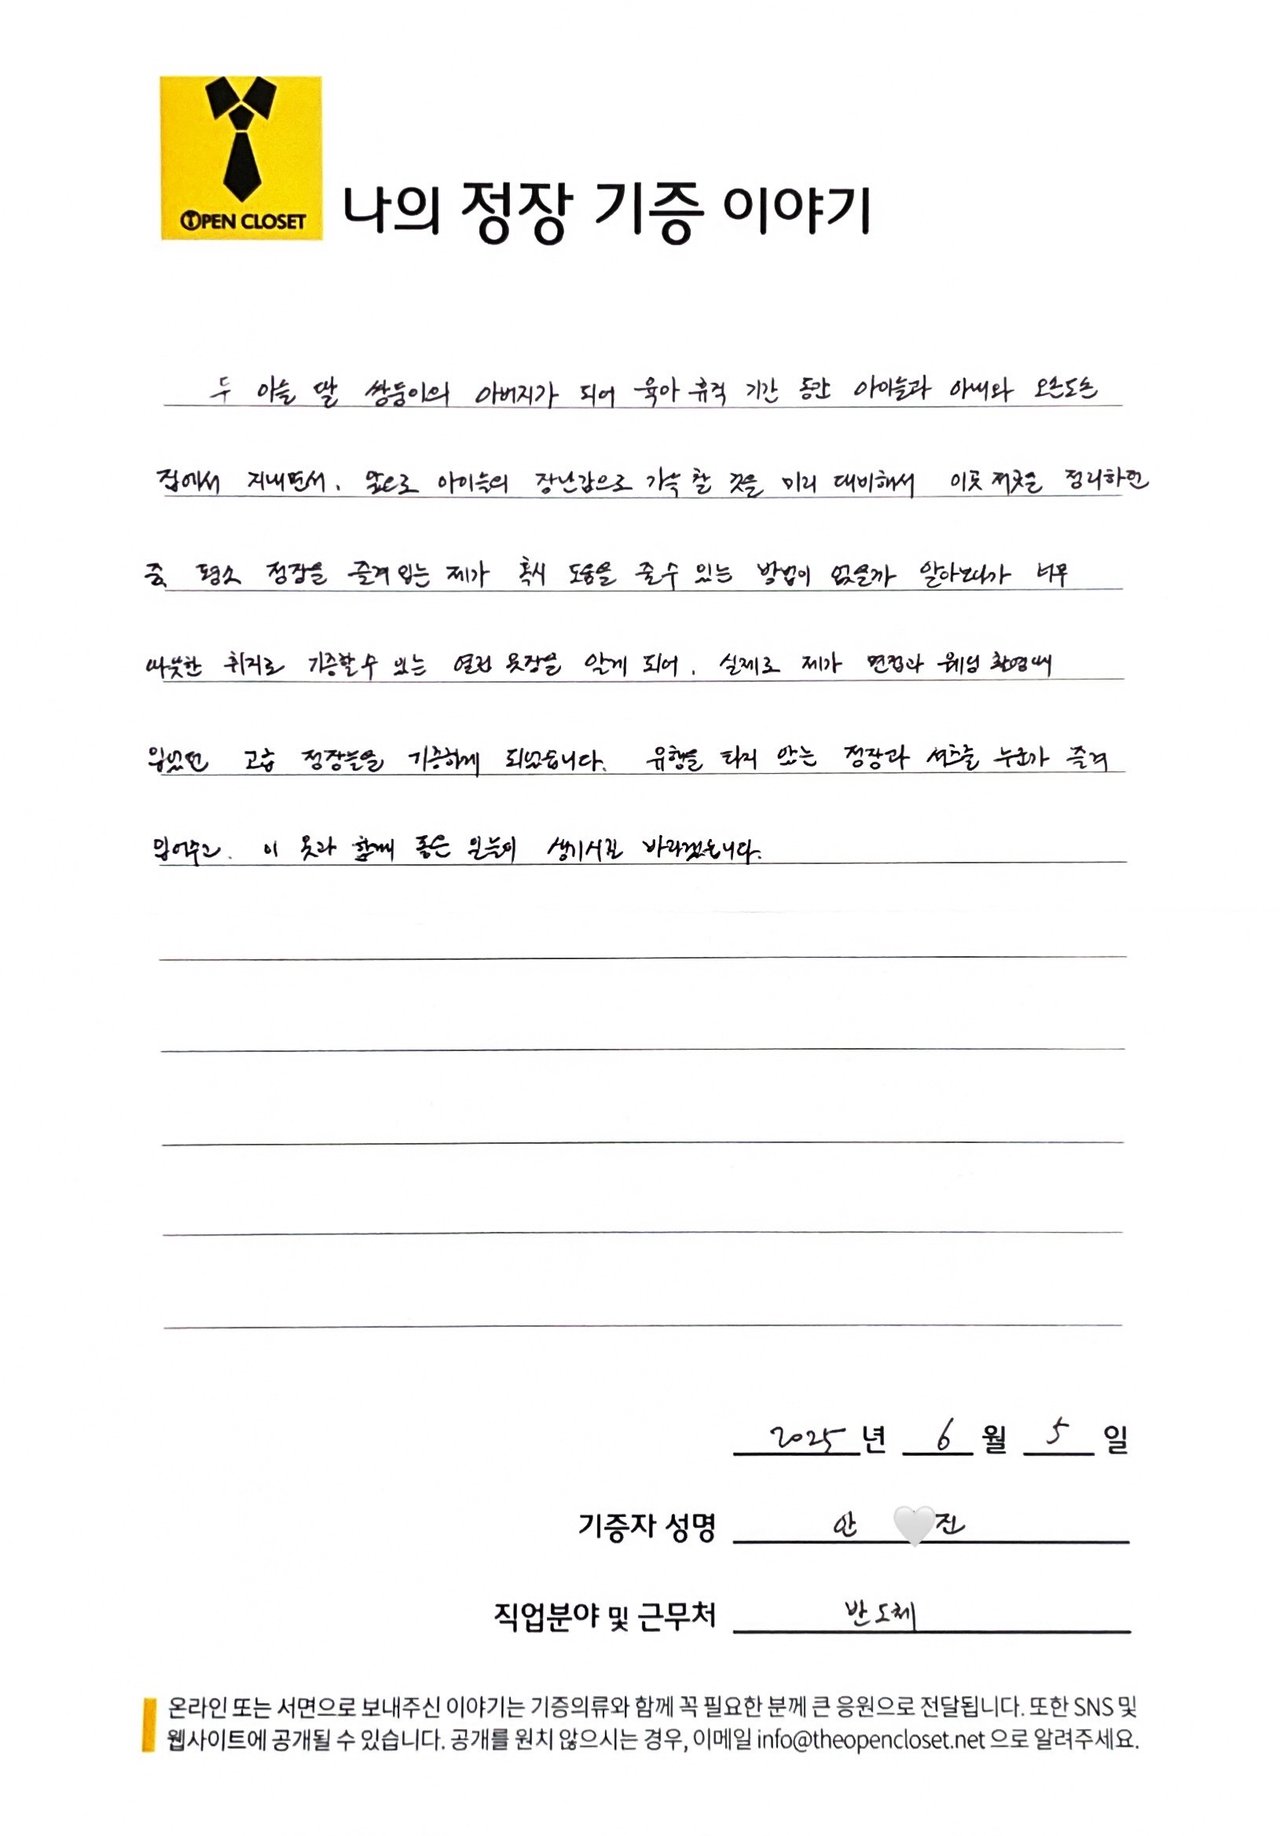 OPEN CLOSET
나의 정장 기증 이야기
두 아들 딸 쌍둥이의 아버지가 되어 육아 휴직 기간 동안 아이들과 아내와 오손도손
집에서 지내면서, 앞으로 아이들의 장난감으로 가득 찰 것을 미리 대비해서 이곳 저곳을 정리하던
중, 평소 정장을 즐겨 입는 제가 혹시 도움을 줄 수 있는 방법이 없을까 알아보다가 너무
따뜻한 취지로 기증할 수 있는 열린 옷장을 알게 되어, 실제로 제가 면접과 웨딩 촬영때
입었던 고급 정장들을 기증하게 되었습니다. 유행을 타지 않는 정장과 셔츠를 누군가 즐겨
입어주고, 이 옷과 함께 좋은 일들이 생기시길 바라겠습니다.
2025 년 6 월 5 일
기증자 성명 안 진
직업분야 및 근무처 반도체
온라인 또는 서면으로 보내주신 이야기는 기증의류와 함께 꼭 필요한 분께 큰 응원으로 전달됩니다. 또한 SNS 및
웹사이트에 공개될 수 있습니다. 공개를 원치 않으시는 경우, 이메일 info@theopencloset.net 으로 알려주세요.